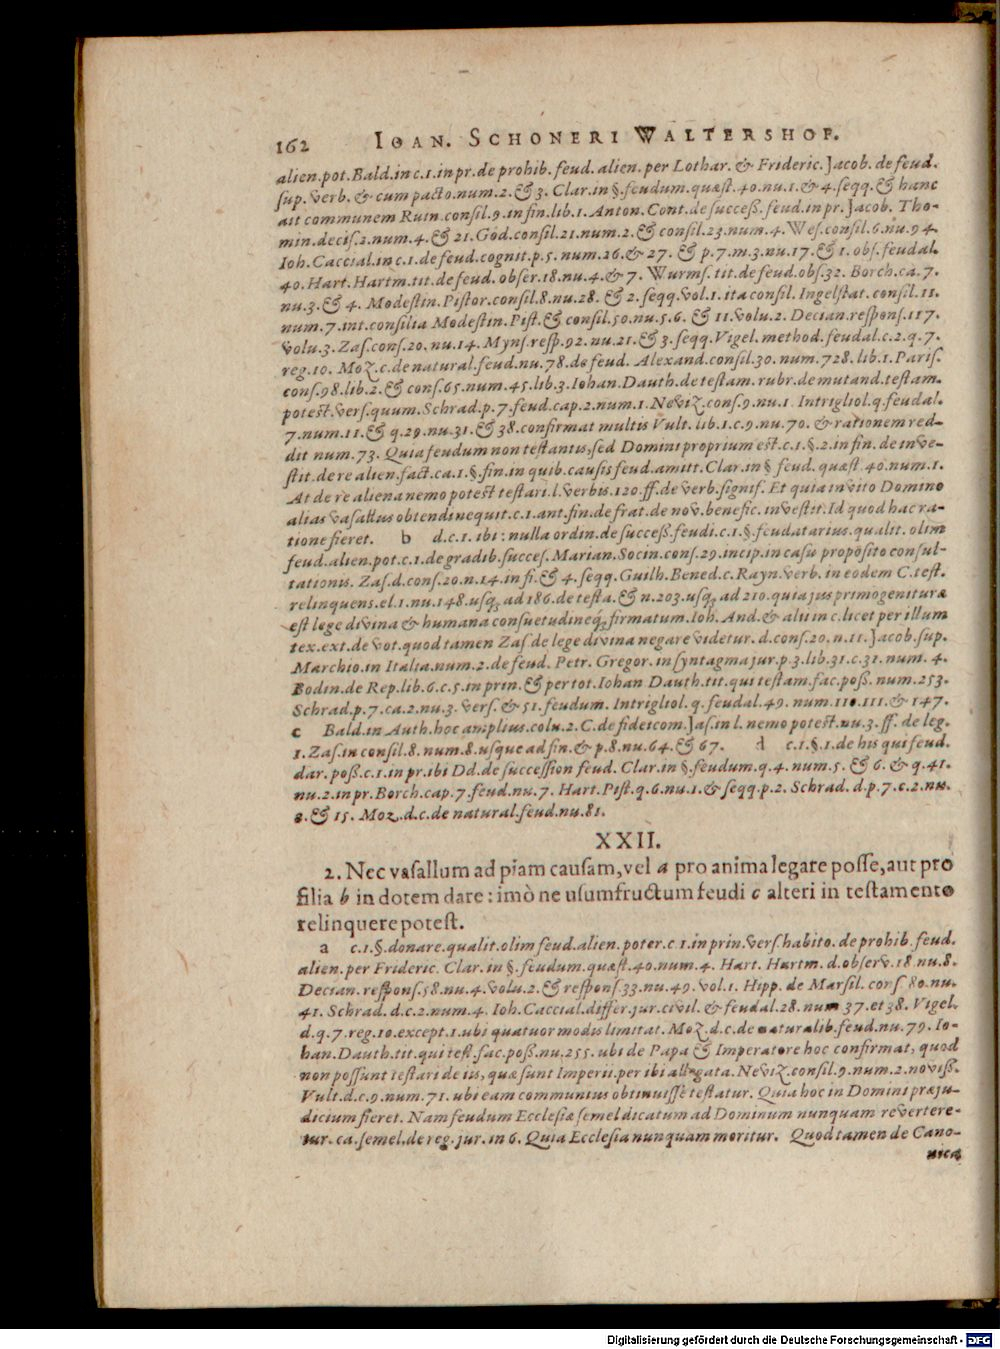 162 IOAN. SCHONERI WALTERSHOF.
alien.pot.Bald.in c.1.in pr.de prohib. feud. alien. per Lothar. & Frideric. Jacob. de feud.
sup. verb. & cum pacto.num.2.& 3. Clar.in §.feudum.quæst.40.nu.1.& 4.seqq.& hanc
ait communem Ruin.consil.9.in fin.lib.1. Anton. Cont.de success.feud.in pr. Jacob. Tho-
min.decis.2.num.4.& 21.God.consil.21.num.2.& consil.23.num.4.Wes.consil.6.nu.94.
Ioh. Caccial.in c.1.de feud.cognit.p.5. num.26.& 27. & p.7.m.3.nu.17.& 1.obs.feudal.
40.Hart.Hartm.tit.de feud. obser.18.nu.4.& 7. Wurms. tit.de feud.obs.32. Borch.ca.7.
nu.3.& 4. Modestin.Pistor.consil.8.nu.28. & 2.seqq.vol.1. ita consil. Ingelstat. consil.11.
num.7.int.consilia Modestin.Pist.& consil.50.nu.5.6. & 11.volu.2. Decian.respons.117.
volu.3. Zas.cons.20.nu.14. Myns.resp.92.nu.21.& 3.seqq.Vigel.method.feudal.c.2.q.7.
reg.10. Moz.c.de natural.feud.nu.78.de feud. Alexand.consil.30.num.728.lib.1.Paris.
cons.98.lib.2.& cons.65.num.45.lib.3.Iohan.Dauth.de testam.rubr.de mutand.testam.
potest.vers.quum.Schrad.p.7.feud.cap.2.num.1.Neviz.cons.9.nu.1. Intrigliol.q.feudal.
7.num.11.& q.29.nu.31.& 38.confirmat multis Vult.lib.1.c.9.nu.70. & rationem red-
dit num.73. Quia feudum non testantis,sed Domini proprium est.c.1.§.2.in fin.de inve-
stit.de re alien.fact.ca.1.§.fin.in quib.causis feud.amitt.Clar.in § feud.quæst.40.num.1.
At de re aliena nemo potest testari.l.verbis.120.ff.de verb.signif. Et quia invito Domino
alias vasallus obtendi nequit.c.1.ant.fin.de frat.de nov.benefic.investit.Id quod hac ra-
tione fieret. b d.c.1.ibi:nulla ordin.de success.feudi.c.1.§.feudatarius.qualit.olim
feud.alien.pot.c.1.de gradib.succes.Marian.Socin.cons.29.incip.in casu proposito consul-
tationis. Zas.d.cons.20.n.14.in fi.& 4.seqq.Guilh.Bened.c.Rayn.verb. in eodem C.test.
relinquens.el.1.nu.148.usq; ad 186.de testa.& n.203.usq; ad 210.quia jus primogenituræ
est lege divina & humana consuetudineq; firmatum.Ioh. And.& alii in c.licet per illum
tex.ext.de vot.quod tamen Zas de lege divina negare videtur. d.cons.20. n.11.Jacob.sup.
Marchio.in Italia.num.2.de feud. Petr. Gregor. in syntagma jur.p.3.lib.31.c.31.num.4.
Bodin.de Rep.lib.6.c.5.in prin.& per tot.Iohan Dauth.tit.qui testam.fac.poss.num.253.
Schrad.p.7.ca.2.nu.3.vers.& 51.feudum.Intrigliol.q.feudal.49.num.110.111.& 147.
c Bald.in Auth.hoc amplius.colu.2.C.de fideicom.Jas.in l. nemo potest.nu.3.ff.de leg.
1.Zas.in consil.8.num.8.usque ad fin.& p.8.nu.64.& 67. d c.1.§.1.de his qui feud.
dar.poss.c.1.in pr.ibi Dd.de succession feud. Clar.in §.feudum.q.4.num.5. & 6. & q.41.
nu.2.in pr.Borch.cap.7.feud.nu.7. Hart.Pist.q.6.nu.1.& seqq.p.2. Schrad. d.p.7.c.2.nu.
8.& 15. Moz.d.c.de natural.feud.nu.81.
XXII.
2. Nec vasallum ad piam causam, vel a pro anima legare posse, aut pro
filia b in dotem dare: imò ne usumfructum feudi c alteri in testamento
relinquere potest.
a c.1.§.donare.qualit.olim feud.alien.poter.c.1.in prin.vers.habito.de prohib.feud.
alien.per Frideric. Clar.in §.feudum.quæst.40.num.4. Hart. Hartm.d.observ.18.nu.8.
Decian.respons.58.nu.4.volu.2.& respons.33.nu.49.vol.1. Hipp.de Marsil.cons 80.nu.
41. Schrad. d.c.2.num.4. Ioh.Caccial.differ.jur.civil.& feudal.28.num 37.et 38. Vigel.
d.q.7.reg.10.except.1.ubi quatuor modis limitat. Moz.d.c.de naturalib.feud.nu.79. Io-
han.Dauth.tit.qui test.fac.poss.nu.255. ubi de Papa & Imperatore hoc confirmat, quod
non possunt testari de iis, quæ sunt Imperii.per ibi allegata.Neviz.consil.9.num.2.noviss.
Vult.d.c.9.num.71.ubi eam communius obtinuisse testatur. Quia hoc in Domini præju-
dicium fieret. Nam feudum Ecclesiæ semel dicatum ad Dominum nunquam revertere-
tur. ca.semel.de reg.jur.in 6. Quia Ecclesia nunquam moritur. Quod tamen de Cano-
nica
Digitalisierung gefördert durch die Deutsche Forschungsgemeinschaft - DFG